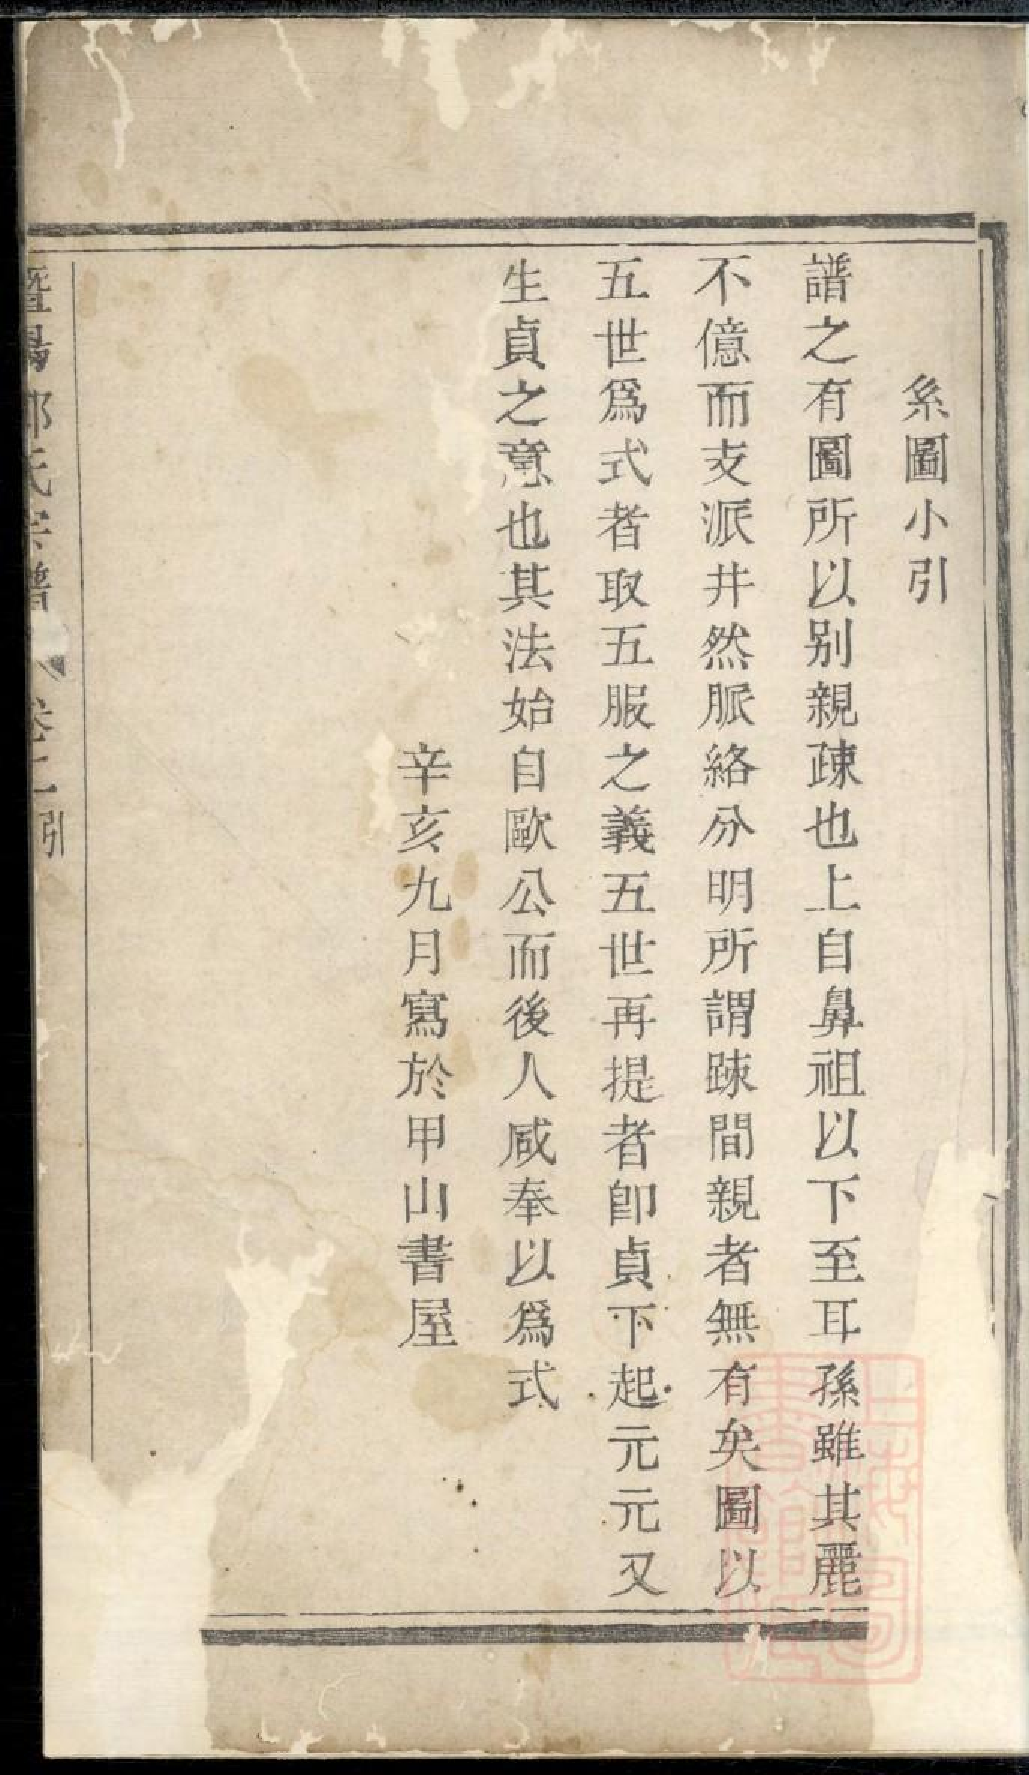 系圖小引
譜之有圖所以别親疎也上自鼻祖以下至耳孫雖其麗
不億而支派井然脈絡分明所謂踈間親者無有矣圖以
五世爲式者取五服之義五世再提者卽貞下起元元又
生貞之意也其法始自歐公而後人咸奉以爲式
辛亥九月寫於甲山書屋
暨陽 氏宗譜 卷二 引
上海圖書館藏